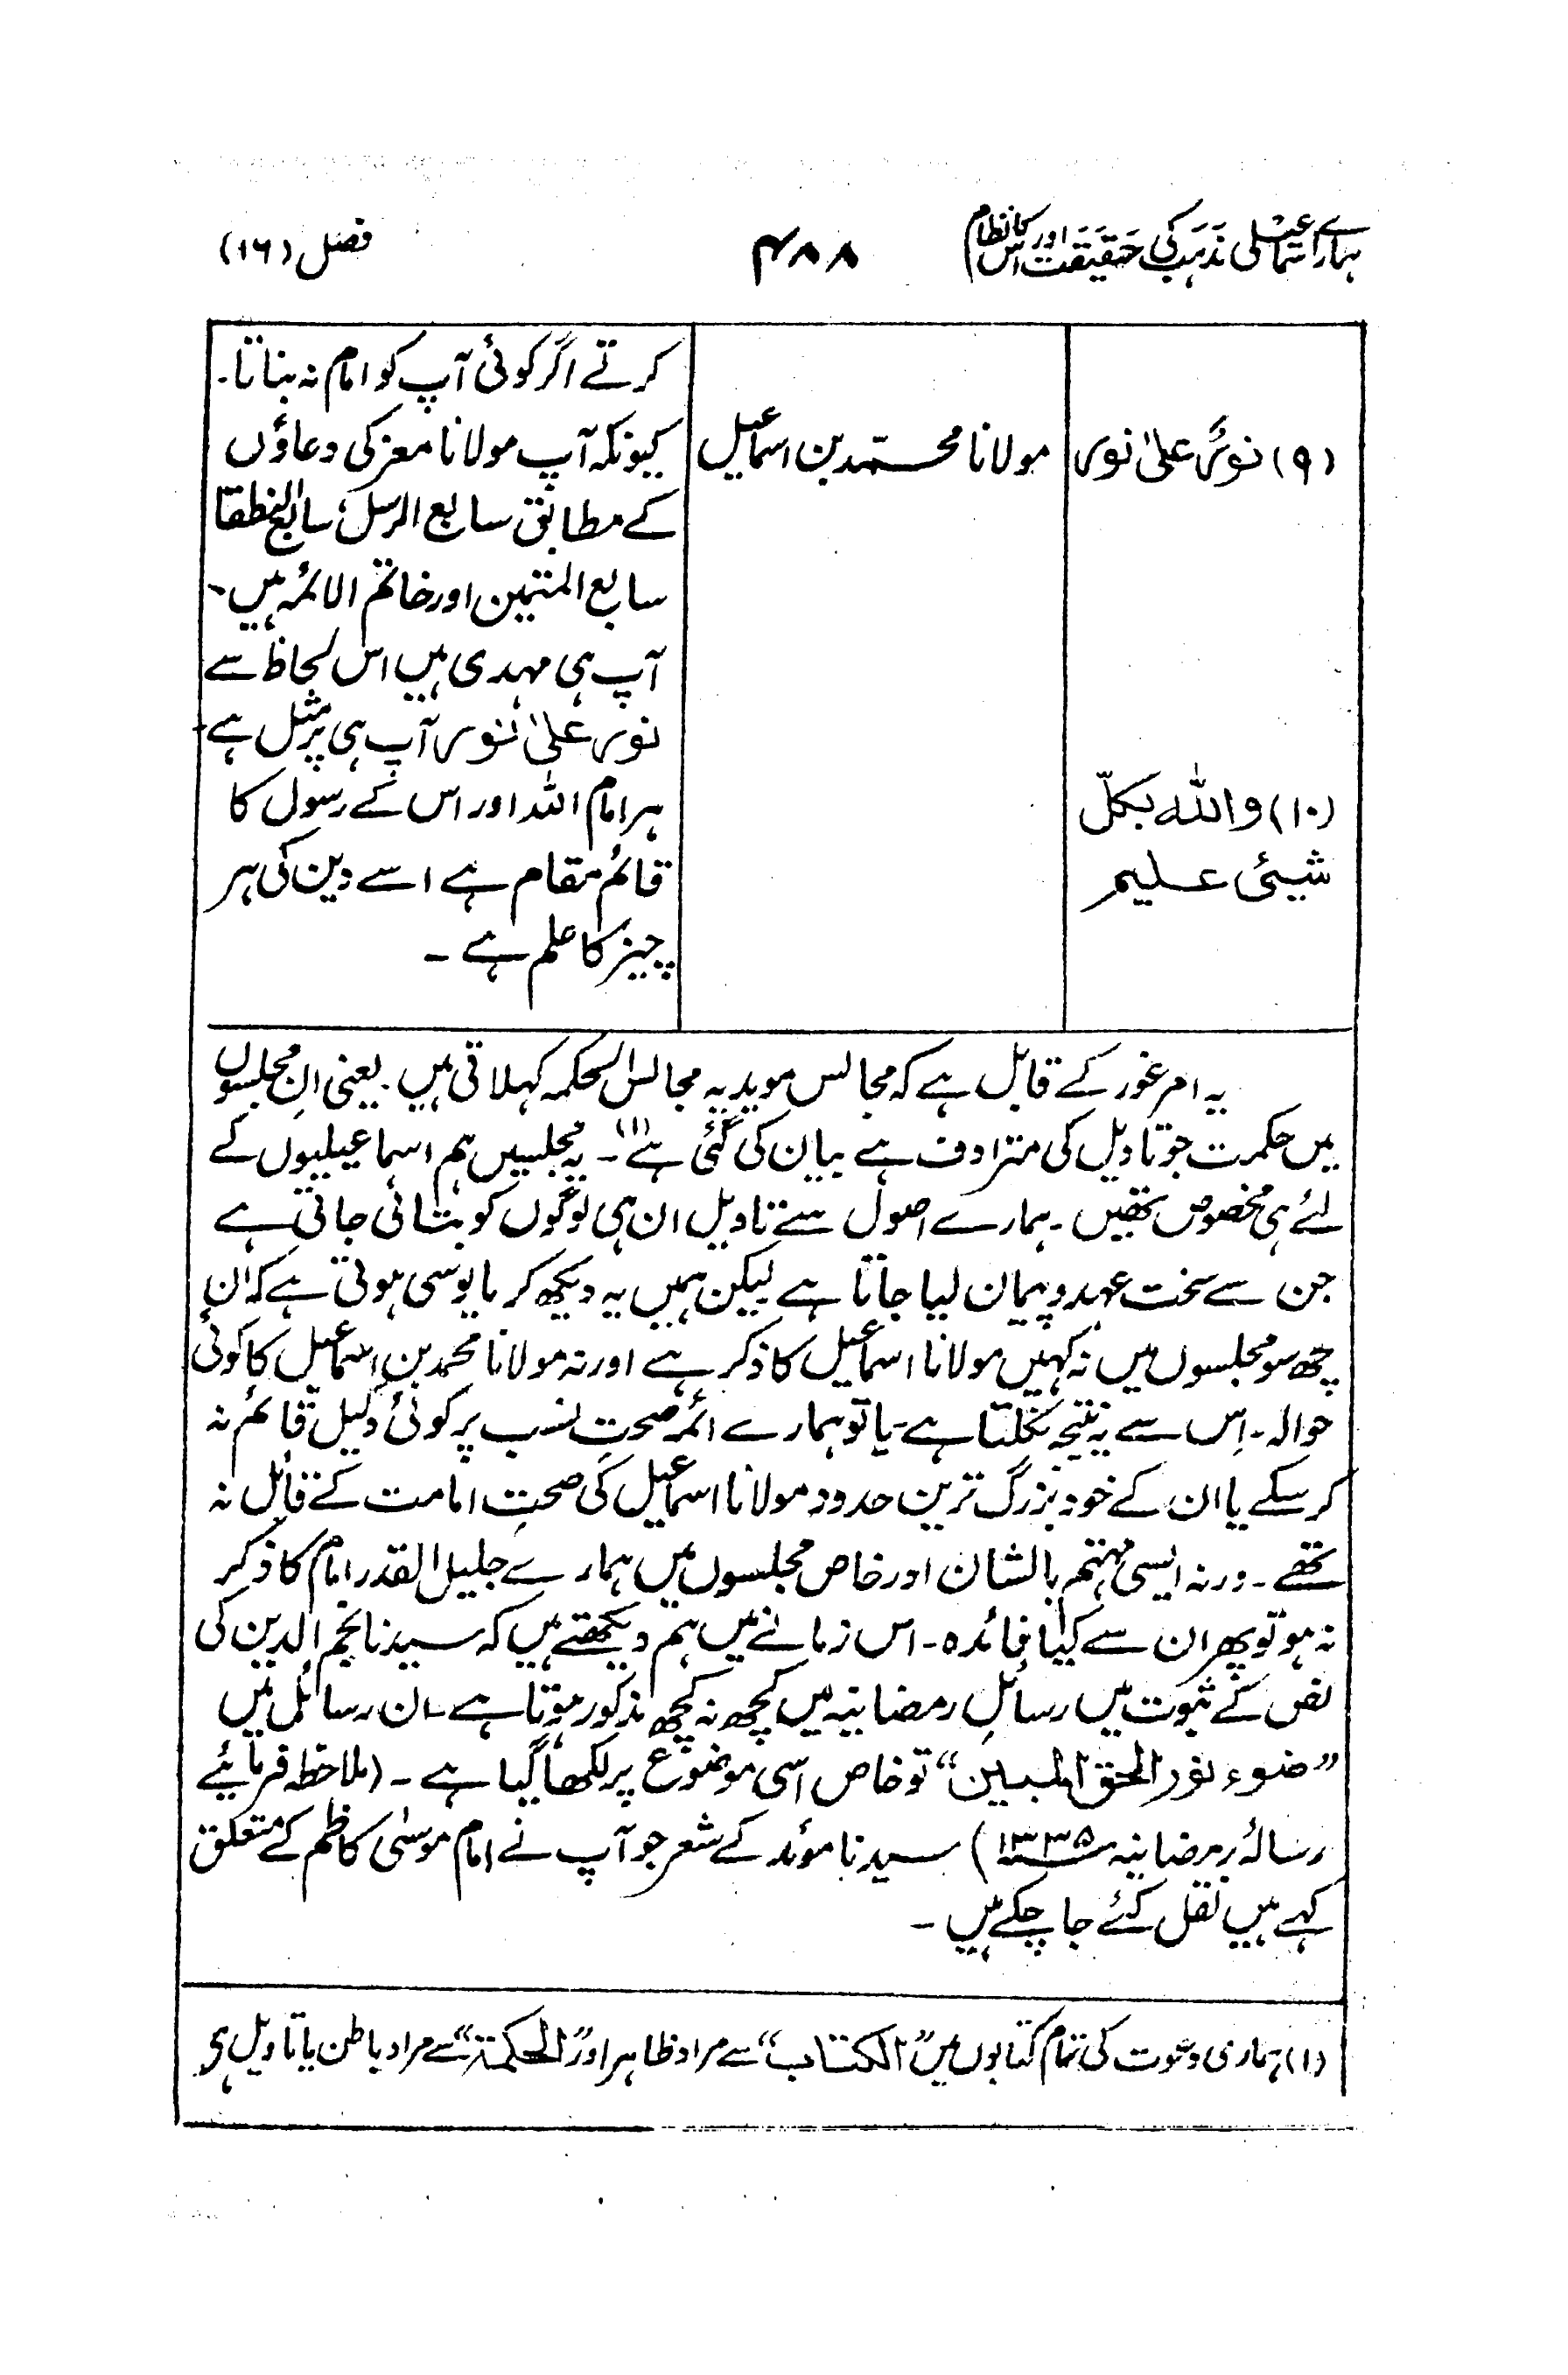 ہمارے اسماعیلی مذہب کی حقیقت اور اس کا نظام
۴۸۸
فصل (۱۶)
کرتے اگر کوئی آپ کو امام نہ بناتا۔
(۹) نورٌ علیٰ نور
مولانا محمّد بن اسماعیل
کیونکہ آپ مولانا معز کی دعاؤں
کے مطابق سابع الرسل، سابع النطقا
سابع المتمین اور خاتم الائمہ ہیں۔
آپ ہی مہدی ہیں اس لحاظ سے
نور علیٰ نور آپ ہی پر مثل ہے۔
(۱۰) واللہ بکلّ
شیئی علیم
ہر امام اللہ اور اس کے رسول کا
قائم مقام ہے اسے دین کی ہر
چیز کا علم ہے ۔
یہ امر غور کے قابل ہے کہ مجالس مویدیہ مجالس الحکمہ کہلاتی ہیں۔ یعنی ان مجلسوں
میں حکمت جو تاویل کی مترادف ہے بیان کی گئی ہے(۱)۔ یہ مجلسیں ہم اسماعیلیوں کے
لئے ہی مخصوص تھیں ۔ ہمارے اصول سے تاویل ان ہی لوگوں کو بتائی جاتی ہے
جن سے سخت عہد و پیمان لیا جاتا ہے لیکن ہمیں یہ دیکھ کر مایوسی ہوتی ہے کہ ان
چھ سو مجلسوں میں نہ کہیں مولانا اسماعیل کا ذکر ہے اور نہ مولانا محمد بن اسماعیل کا کوئی
حوالہ ۔ اِس سے یہ نتیجہ نکلتا ہے۔ یا تو ہمارے ائمہ صحتِ نسب پر کوئی دلیل قائم نہ
کر سکے یا ان کے خود بزرگ ترین حدود مولانا اسماعیل کی صحتِ امامت کے قائل نہ
تھے ۔ ورنہ ایسی مہتم بالشان اور خاص مجلسوں میں ہمارے جلیل القدر امام کا ذکر
نہ ہو تو پھر ان سے کیا فائدہ ۔ اس زمانے میں ہم دیکھتے ہیں کہ سیدنا نجم الدین کی
نص کے ثبوت میں رسائلِ رمضانیہ میں کچھ نہ کچھ مذکور ہوتا ہے ۔ ان رسائل میں
”ضوء نور الحق المبین“ تو خاص اسی موضوع پر لکھا گیا ہے ۔ (ملاحظہ فرمائیے
رسالۂ رمضانیہ ۱۳۳۵ھ) سیدنا موئد کے شعر جو آپ نے امام موسیٰ کاظم کے متعلق
کہے ہیں نقل کئے جا چکے ہیں ۔
(۱) ہماری دعوت کی تمام کتابوں میں ”الکتاب“ سے مراد ظاہر اور ”الحکمۃ“ سے مراد باطن یا تاویل ہے